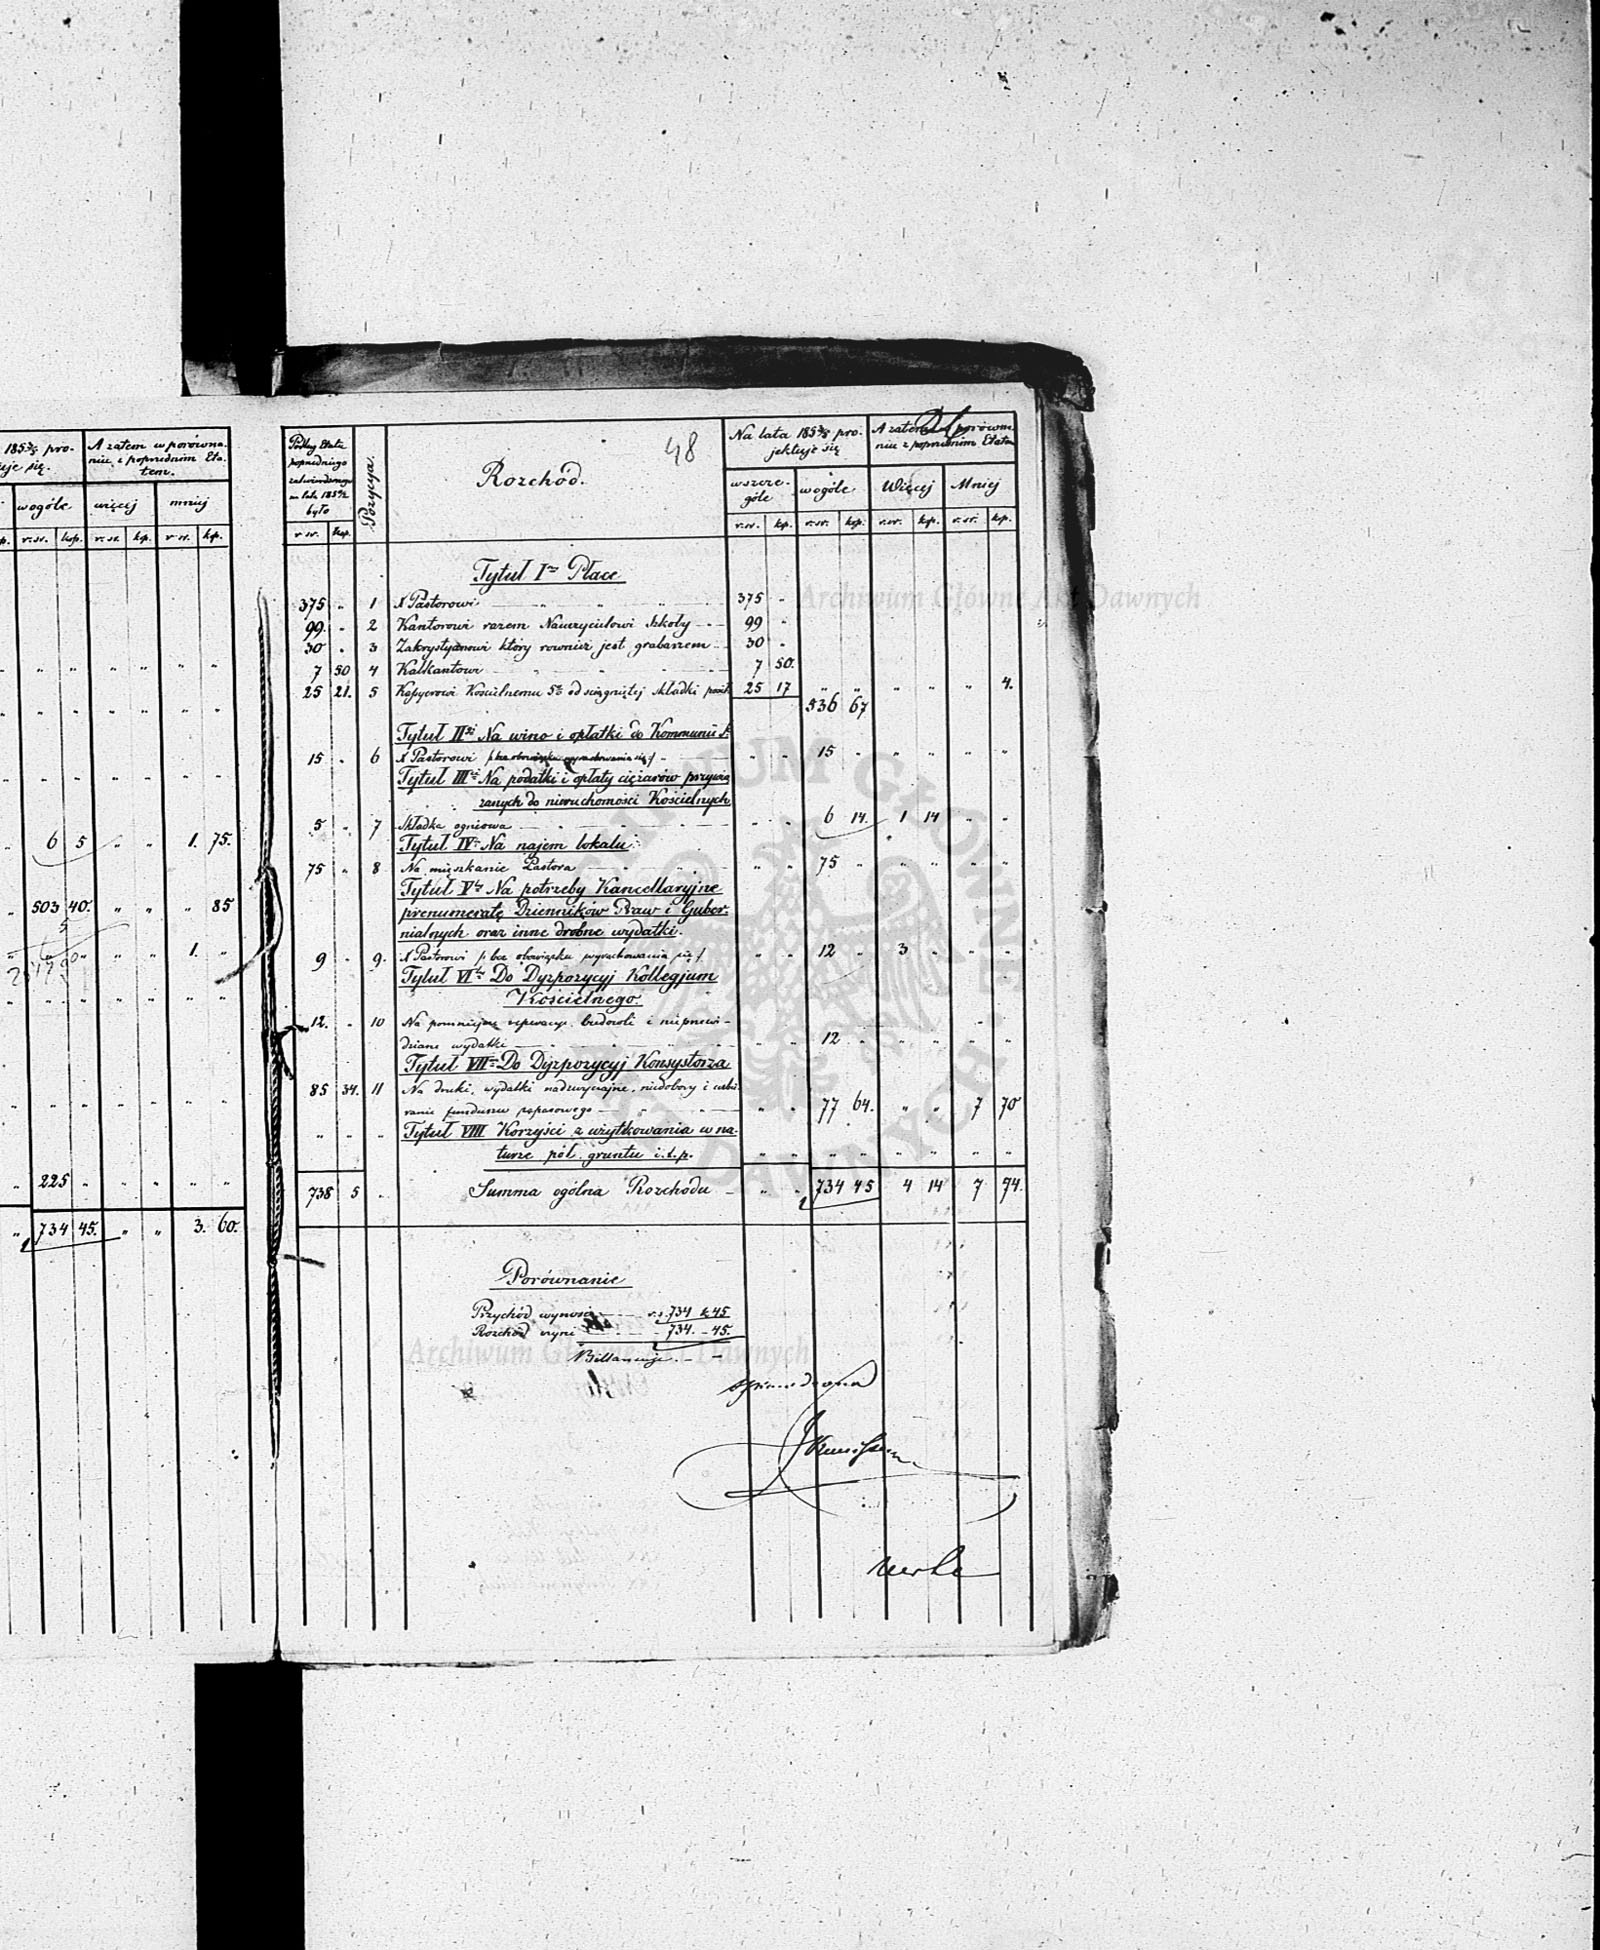 185 5/8 pro-
uje się.
A zatem w porówna-
niu z poprzednim Eta-
tem.
wogóle więcej mniej
kp. r. sr. kop. r. sr. kp. r. sr. kp.
6 5 " " 1. 75.
503 40. " " " 85
5
" " 1. "
225 " " " " "
734 45. " " 3. 60.
48
Podług Etatu
poprzedniego
zatwierdzonego
na lata 185
było
r. sr. kop.
Pozycya.
Rozchód.
Na lata 185 5/8 pro-
jektuje się
A zatem porówna-
niu z poprzednim Etatem
wszcze-
góle
wogóle Więcej Mniej
r. sr. kp. r. sr. kp. r. sr. kp. r. sr. kp.
Tytuł I Płace
375 " 1 X Pastorowi " " " " 375 "
99. " 2 Kantorowi razem Nauczycielowi Szkoły 99 "
30 " 3 Zakrystyanowi który rownież jest grabarzem 30 "
7 50 4 Kalikantowi " " " 7 50.
25 21. 5 Kassyerowi Kościelnemu 5% od ściągniętej składki 25 17 " " " " " 4.
536 67
Tytuł II Na wino i opłatki do Kommunii S.
15 " 6 X Pastorowi /: bez obowiązku wyrachowania się :/ " " 15 " " " " "
Tytuł III Na podatki i opłaty ciężarów przywią
zanych do nieruchomości Kościelnych
5 " 7 Składka ogniowa " " 6 14. 1 14 " "
Tytuł IV Na najem lokalu
75 " 8 Na mieszkanie Pastora " " 75 " " " " "
Tytuł V Na potrzeby Kancellaryjne
prenumeratę Dzienników Praw i Guber-
nialnych oraz inne drobne wydatki.
9 " 9. X Pastorowi /: bez obowiązku wyrachowania się :/ " " 12 " 3 " " "
Tytuł VI Do Dyzpozycyj Kollegjum
Kościelnego.
12. " 10 Na pomniejsze reperacye budowli i nieprzewi-
dziane wydatki " " 12 " " " " "
Tytuł VII Do Dyzpozycyj Konsystorza
85 34. 11 Na druki, wydatki nadzwyczajne, niedobory i uzbi-
ranie funduszu zapasowego " " 77 64. " " 7 70
" " " Tytuł VIII Korzyści z użytkowania w na-
turze pól, gruntu i.t.p. " " " " " " " "
738 5 " Summa ogólna Rozchodu " " 734 45 4 14 7 74.
Porównanie
Przychód wynosi r.s. 734 k 45
Rozchód czyni 734. - 45.
Billansuje. - -
Archiwum Główne Akt Dawnych
Archiwum Główne Akt Dawnych
ARCHIWUM GŁÓWNE AKT DAWNYCH